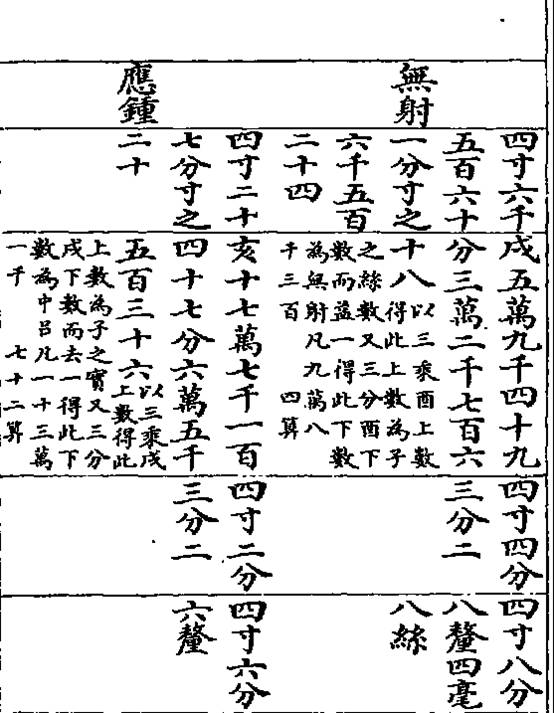 無射
四寸六千
五百六十
一分寸之
六千五百
二十四
戌五萬九千四十九
分三萬二千七百六
十八以三乘酉上數
得此上數為子
之絲數又三分酉下
數而益一得此下數
為無射凡九萬八
千三百 四算
四寸四分
三分二
四寸八分
八釐四毫
八絲
應鍾
四寸二十
七分寸之
二十
亥十七萬七千一百
四十七分六萬五千
五百三十六以三乘戌
上數得此
上數為子之實又三分
戌下數而去一得此下
數為中呂凡一十三萬
一千 七十二算
四寸二分
三分二
四寸六分
六釐